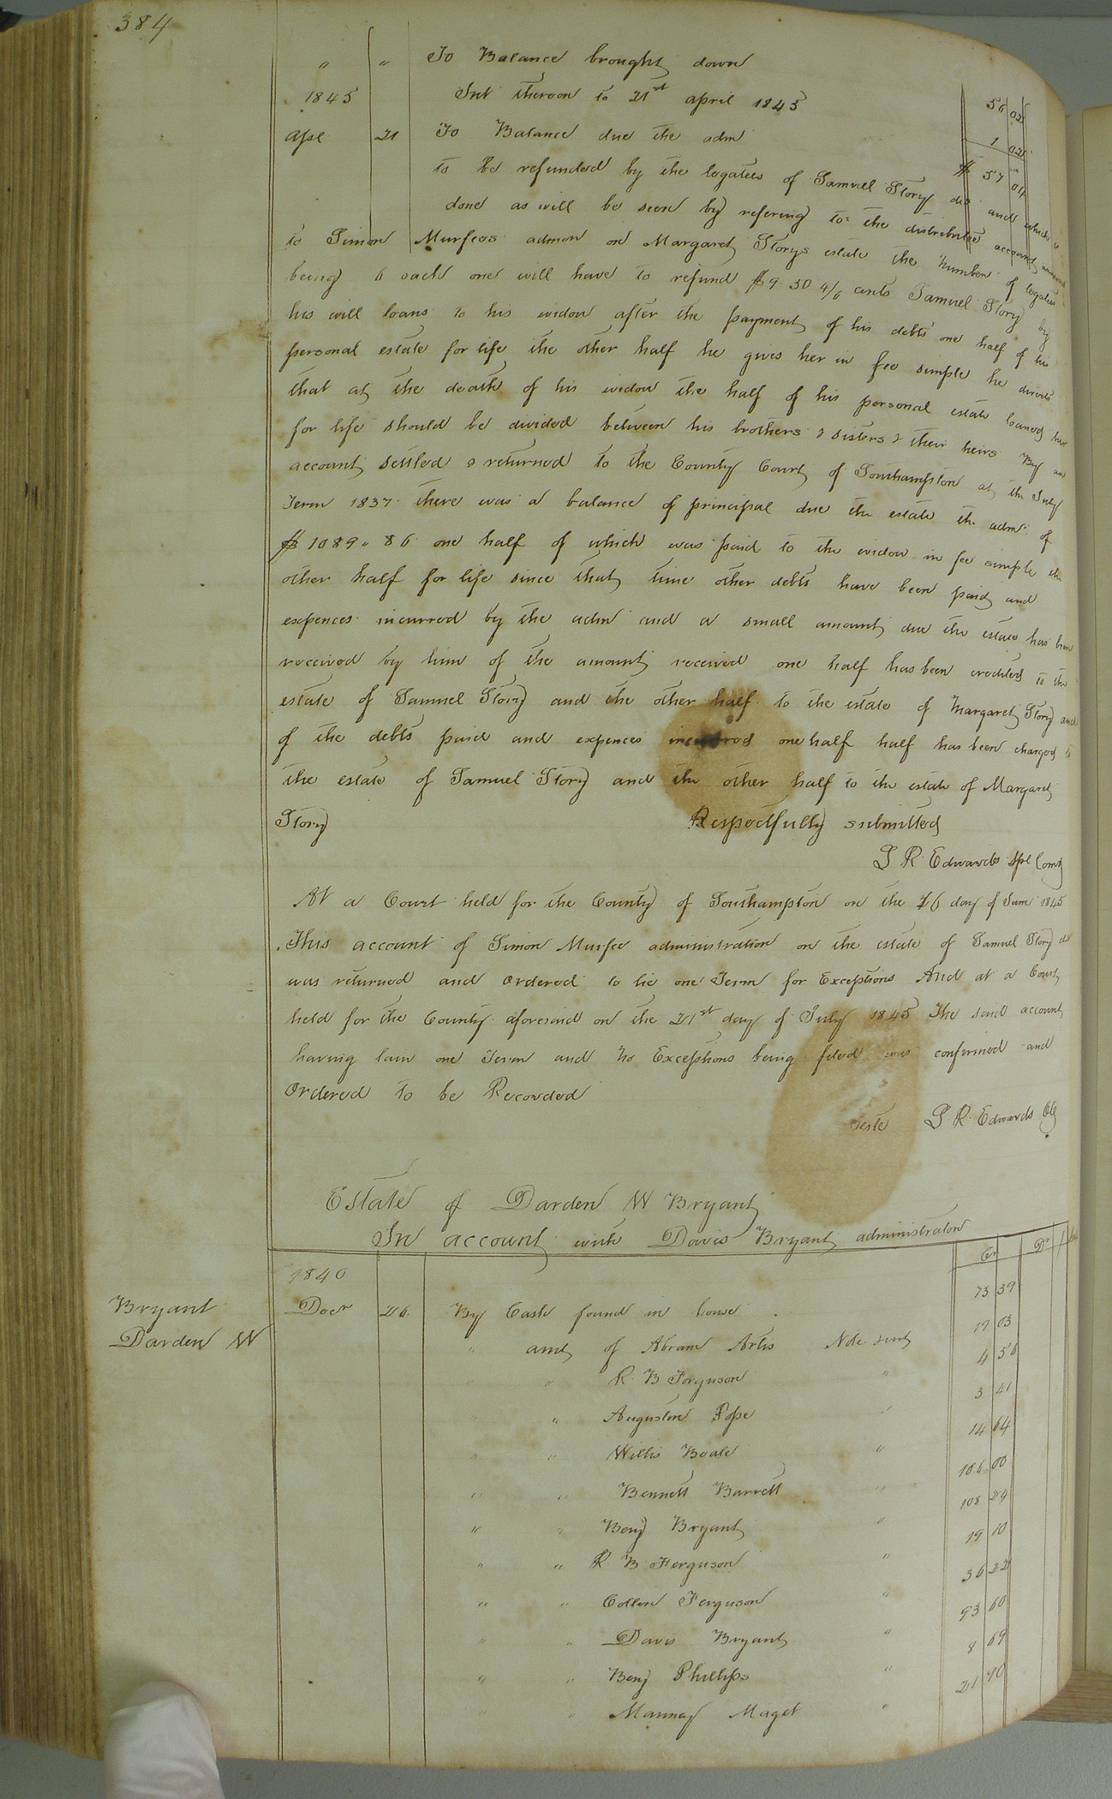 384
" " To Balance brought down 56 02
1845 Int thereon to 21st april 1845 1 02
Apl 21 To Balance due the adm $57 04
to be refunded by the legatees of Samuel Story dec and which is
done as will be seen by refering to the distributee account
to Simon Murfees admon on Margaret Storys estate the number of legatees
being 6 each one will have to refund $9.50 4/6 cents Samuel Story by
his will loans to his widow after the payment of his debts one half of his
personal estate for life the other half he gives her in fee simple he directs
that at the death of his widow the half of his personal estate loaned her
for life should be divided between his brothers & sisters & their heirs By an
account settled & returned to the County Court of Southampton at the July
Term 1837 there was a balance of principal due the estate the adm of
$1089.86 one half of which was paid to the widow in fee simple the
other half for life since that time other debts have been paid and
expences incurred by the adm and a small amount due the estate has been
received by him of the amount received one half has been credited to the
estate of Samuel Story and the other half to the estate of Margaret Story and
of the debts paid and expences incurred one half half has been charged to
the estate of Samuel Story and the other half to the estate of Margaret
Story Respectfully submitted
L R Edwards Spl Comr
At a Court held for the County of Southampton on the 16 day of June 1845
This account of Simon Murfee administration on the estate of Samuel Story dec
was returned and ordered to lie one Term for Exceptions And at a Court
held for the County aforesaid on the 21st day of July 1845 The said account
having lain one Term and no Exceptions being filed was confirmed and
Ordered to be Recorded
Teste L R Edwards Clk
Estate of Darden W Bryant
In account with Davis Bryant administrator
Cr Dr
1840
Bryant
Darden W
Decr 26 By Cash found in house 73 39
" amt of Abram Artis Note sint 17 03
" " R. B Ferguson " 4 56
" Augustin Pope " 3 41
" Willis Beale " 14 64
" " Bennett Barrett " 106.00
" " Benj Bryant " 108 24
" " R B Ferguson " 19 10
" " Collen Ferguson " 36 22
" " Davis Bryant " 93 60
" " Benj Phillips " 8 69
" " Mannay Maget " 21 70